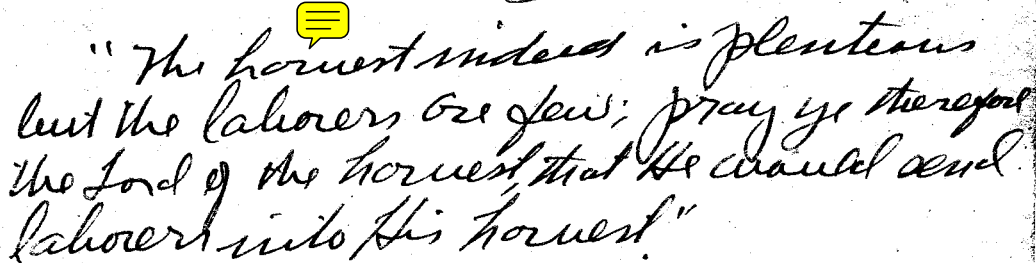 "The harvest indeed is plenteous
but the laborers are few; pray ye therefore
the Lord of the harvest, that He would send
laborers into His harvest"